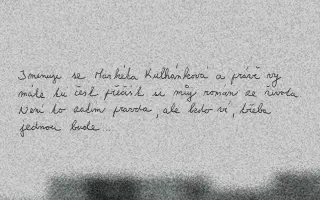 Jmenuji se Markéta Kulhánková a právě vy
máte tu čest přečíst si můj román ze života
Není to zatím pravda, ale kdo ví, třeba
jednou bude...